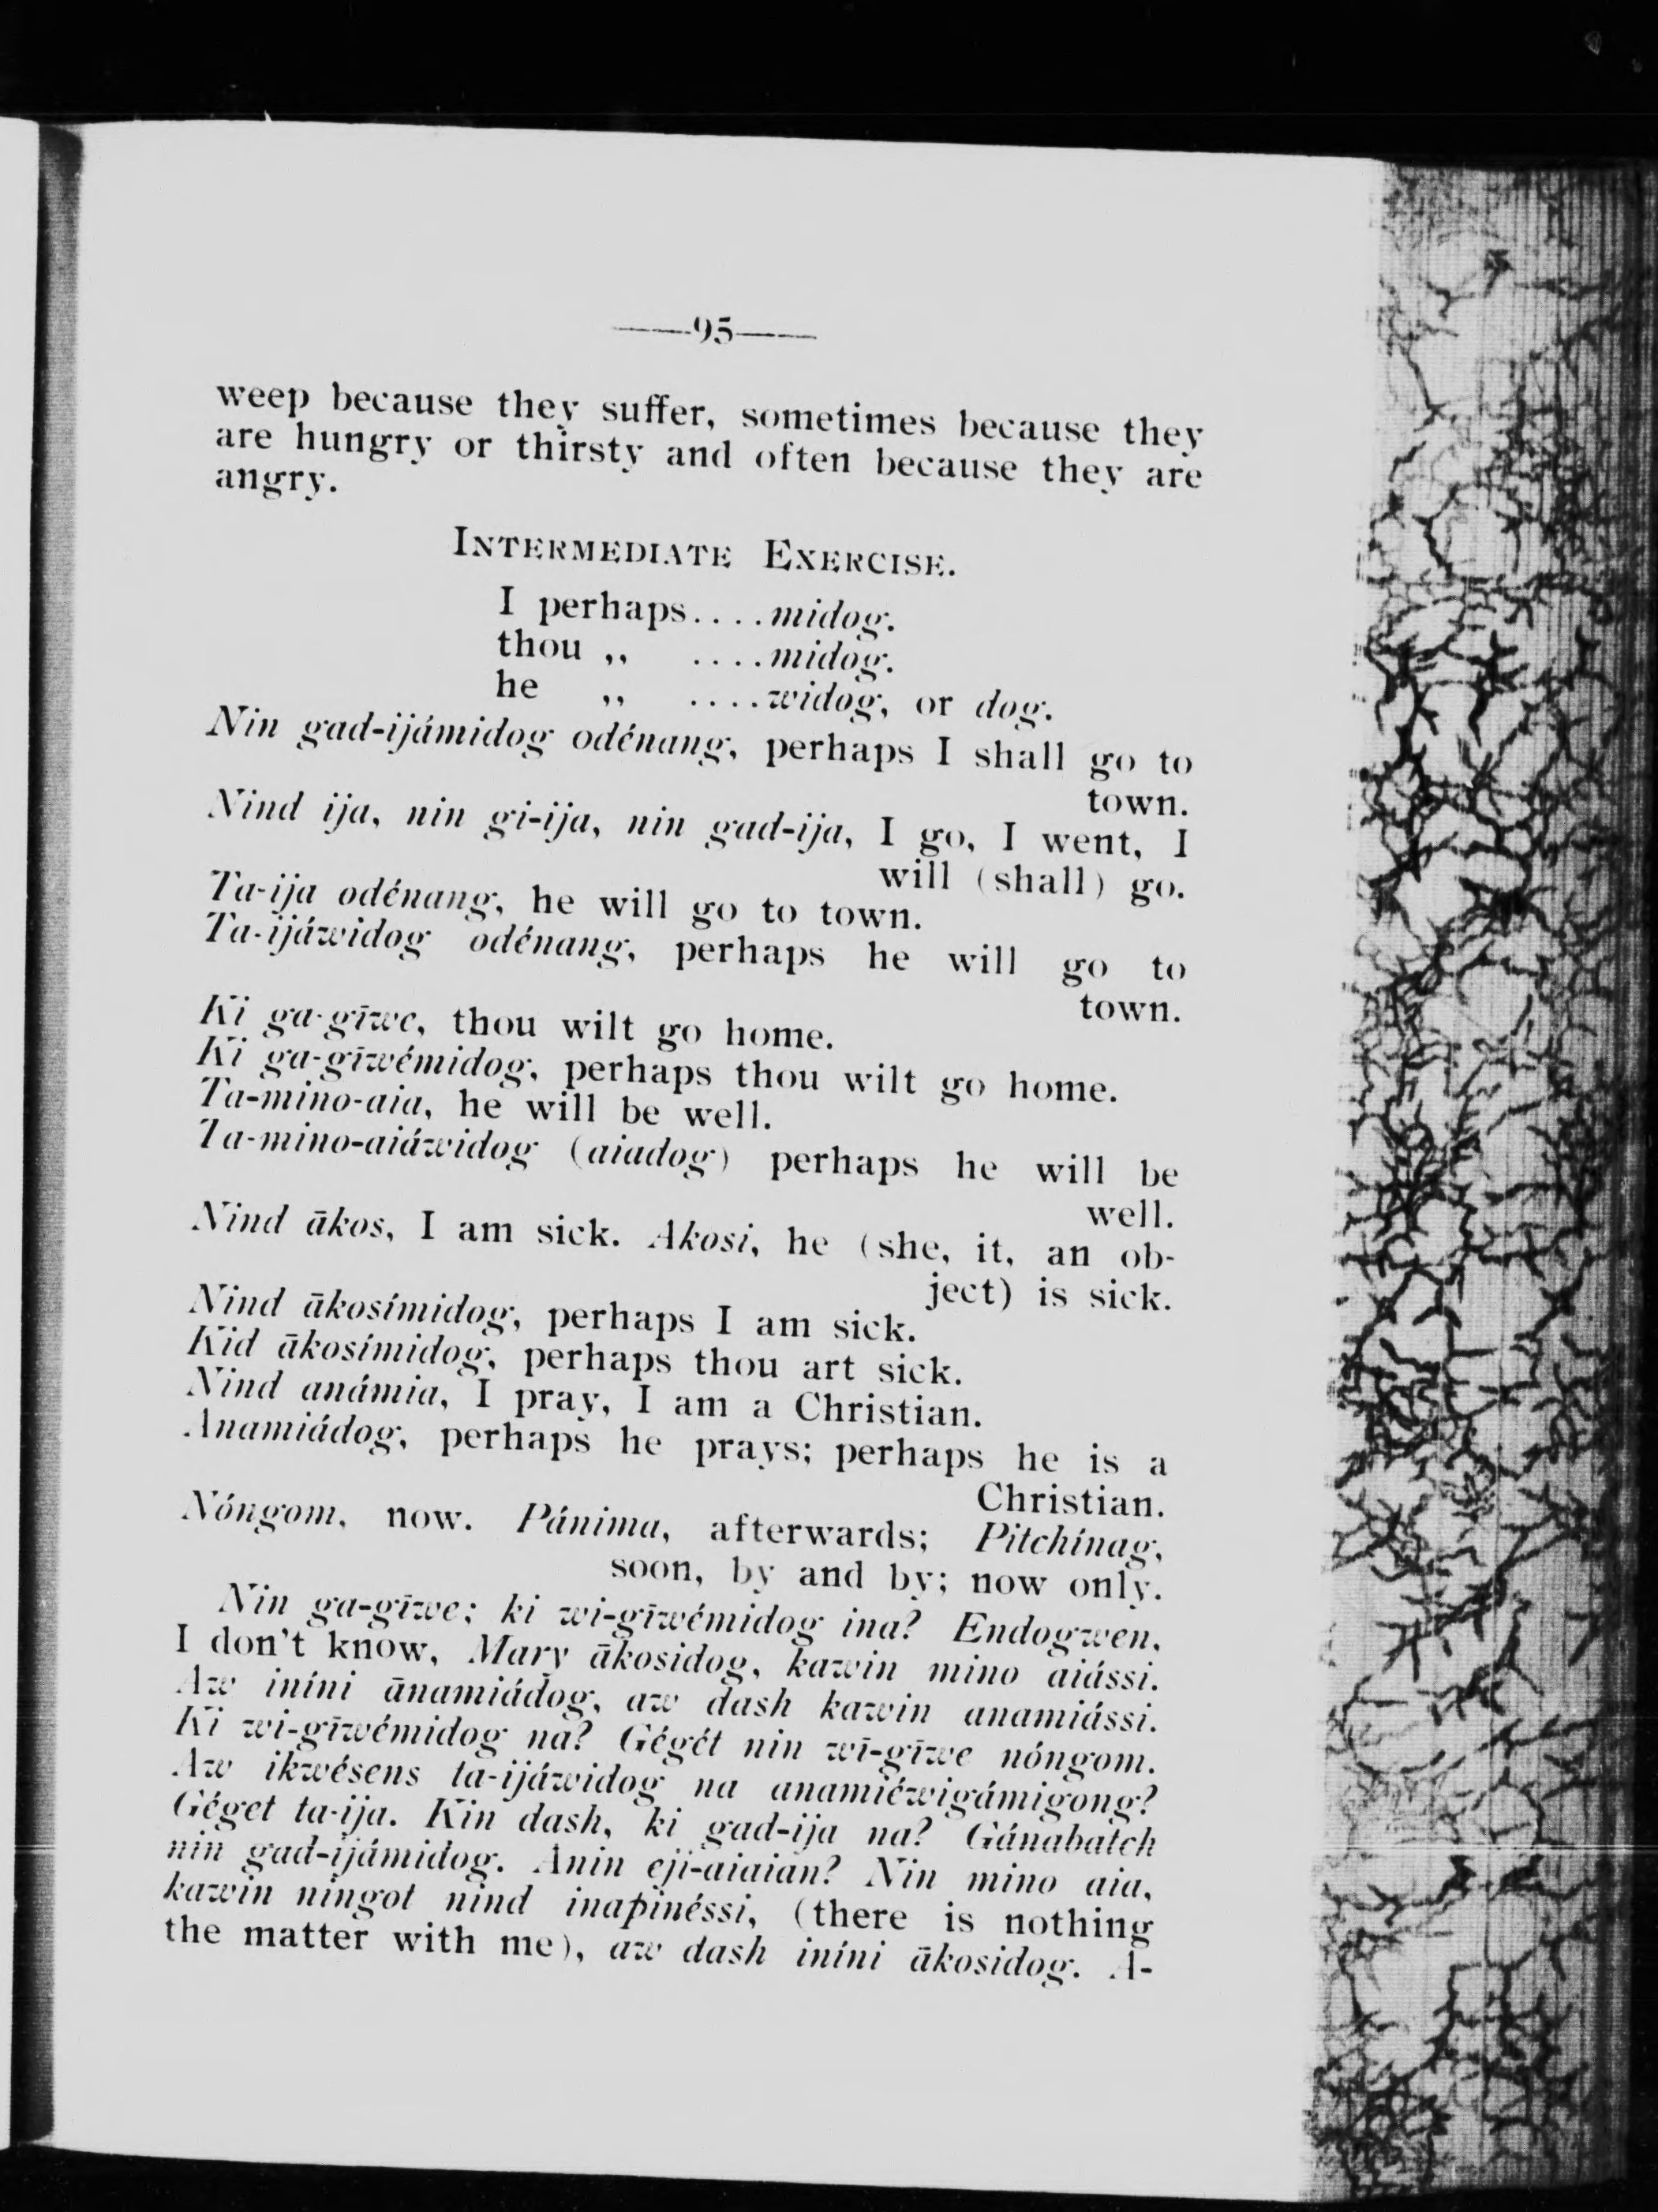 ——95——
weep because they suffer, sometimes because they
are hungry or thirsty and often because they are
angry.
INTERMEDIATE EXERCISE.
I perhaps....midog.
thou ,, ....midog.
he ,, ....widog, or dog.
Nin gad-ijámidog odénang, perhaps I shall go to
town.
Nind ija, nin gi-ija, nin gad-ija, I go, I went, I
will (shall) go.
Ta-ija odénang, he will go to town.
Ta-ijáwidog odénang, perhaps he will go to
town.
Ki ga-gīwe, thou wilt go home.
Ki ga-gīwémidog, perhaps thou wilt go home.
Ta-mino-aia, he will be well.
Ta-mino-aiáwidog (aiadog) perhaps he will be
well.
Nind ākos, I am sick. Akosi, he (she, it, an ob-
ject) is sick.
Nind ākosímidog, perhaps I am sick.
Kid ākosímidog, perhaps thou art sick.
Nind anámia, I pray, I am a Christian.
Anamiádog, perhaps he prays; perhaps he is a
Christian.
Nóngom, now. Pánima, afterwards; Pitchínag,
soon, by and by; now only.
Nin ga-gīwe; ki wi-gīwémidog ina? Endogwen,
I don't know, Mary ākosidog, kawin mino aiássi.
Aw iníni ānamiádog, aw dash kawin anamiássi.
Ki wi-gīwémidog na? Gégét nin wī-gīwe nóngom.
Aw ikwésens ta-ijáwidog na anamiéwigámigong?
Géget ta-ija. Kin dash, ki gad-ija na? Gánabatch
nin gad-ijámidog. Anin eji-aiaian? Nin mino aia,
kawin ningot nind inapinéssi, (there is nothing
the matter with me), aw dash iníni ākosidog. A-